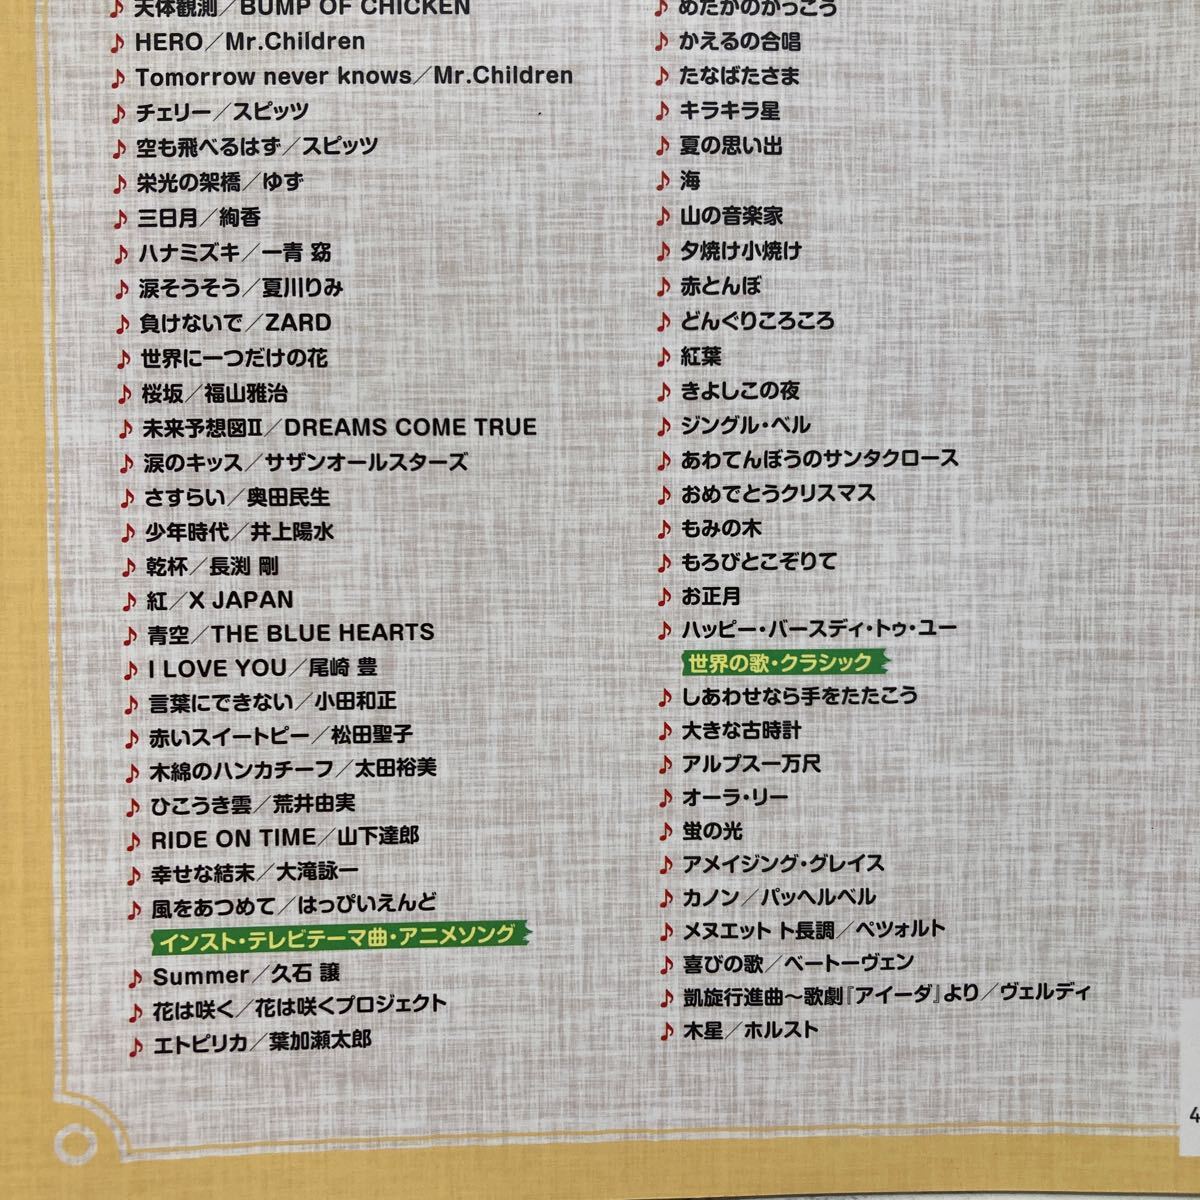 天体観測／BUMP OF CHICKEN
HERO／Mr.Children
Tomorrow never knows／Mr.Children
チェリー／スピッツ
空も飛べるはず／スピッツ
栄光の架橋／ゆず
三日月／絢香
ハナミズキ／一青 窈
涙そうそう／夏川りみ
負けないで／ZARD
世界に一つだけの花
桜坂／福山雅治
未来予想図II／DREAMS COME TRUE
涙のキッス／サザンオールスターズ
さすらい／奥田民生
少年時代／井上陽水
乾杯／長渕 剛
紅／X JAPAN
青空／THE BLUE HEARTS
I LOVE YOU／尾崎 豊
言葉にできない／小田和正
赤いスイートピー／松田聖子
木綿のハンカチーフ／太田裕美
ひこうき雲／荒井由実
RIDE ON TIME／山下達郎
幸せな結末／大滝詠一
風をあつめて／はっぴいえんど
インスト・テレビテーマ曲・アニメソング
Summer／久石 譲
花は咲く／花は咲くプロジェクト
エトピリカ／葉加瀬太郎
めだかのがっこう
かえるの合唱
たなばたさま
キラキラ星
夏の思い出
海
山の音楽家
夕焼け小焼け
赤とんぼ
どんぐりころころ
紅葉
きよしこの夜
ジングル・ベル
あわてんぼうのサンタクロース
おめでとうクリスマス
もみの木
もろびとこぞりて
お正月
ハッピー・バースディ・トゥ・ユー
世界の歌・クラシック
しあわせなら手をたたこう
大きな古時計
アルプス一万尺
オーラ・リー
蛍の光
アメイジング・グレイス
カノン／パッヘルベル
メヌエット ト長調／ペツォルト
喜びの歌／ベートーヴェン
凱旋行進曲〜歌劇『アイーダ』より／ヴェルディ
木星／ホルスト
4